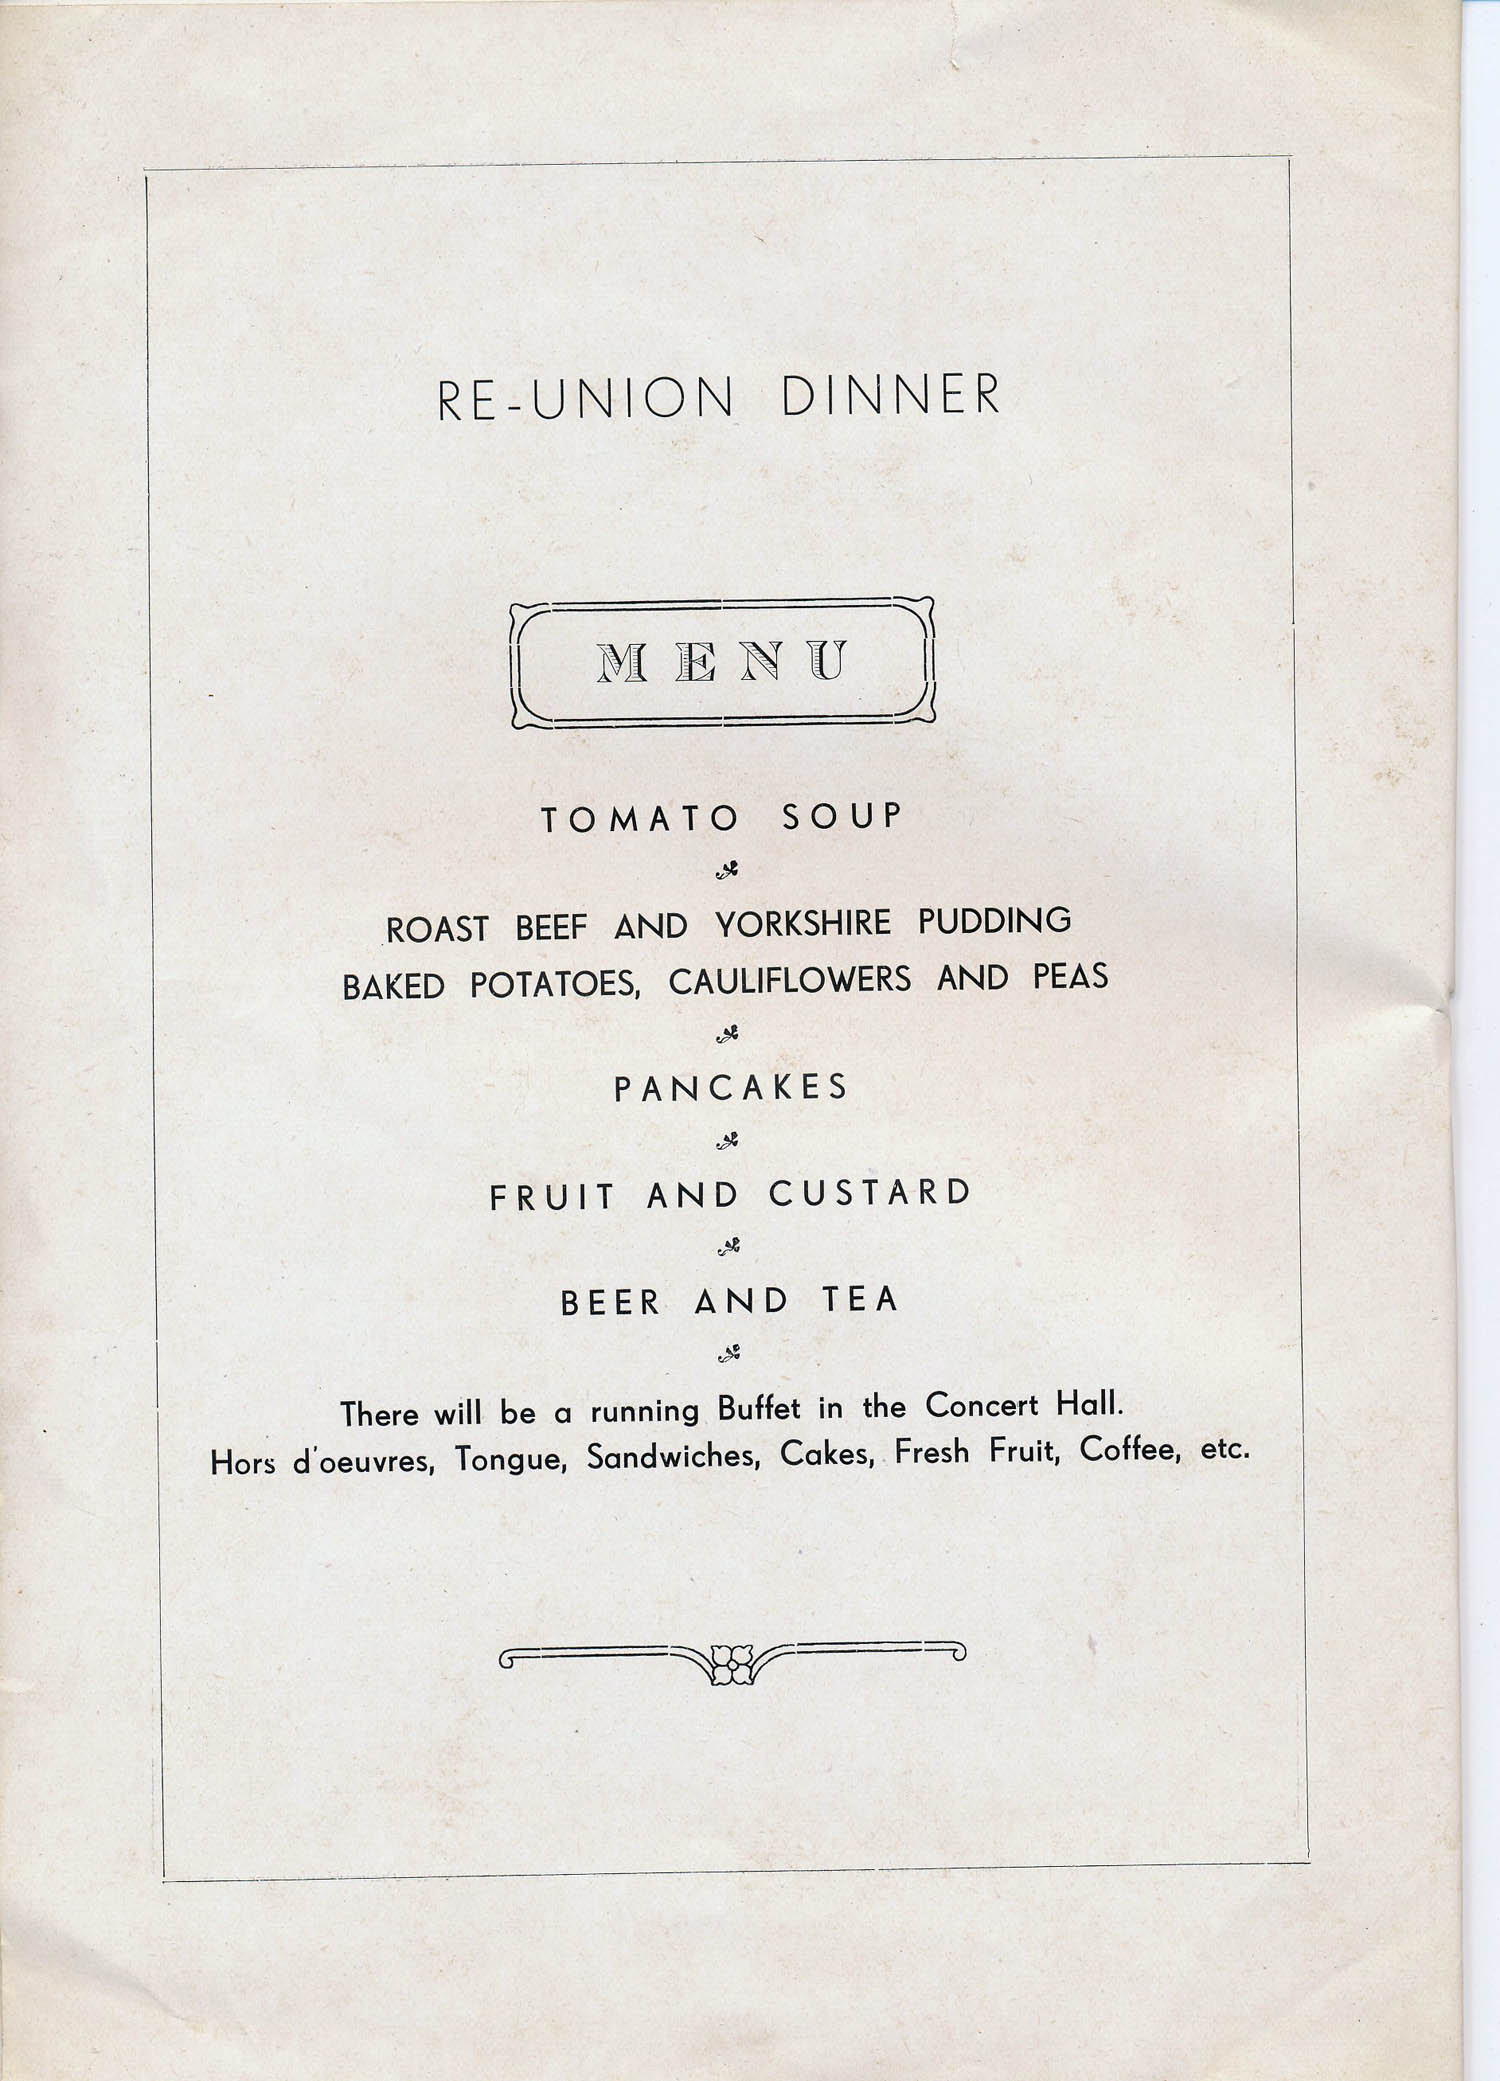 RE-UNION DINNER
MENU
TOMATO SOUP
ROAST BEEF AND YORKSHIRE PUDDING
BAKED POTATOES, CAULIFLOWERS AND PEAS
PANCAKES
FRUIT AND CUSTARD
BEER AND TEA
There will be a running Buffet in the Concert Hall.
Hors d'oeuvres, Tongue, Sandwiches, Cakes, Fresh Fruit, Coffee, etc.